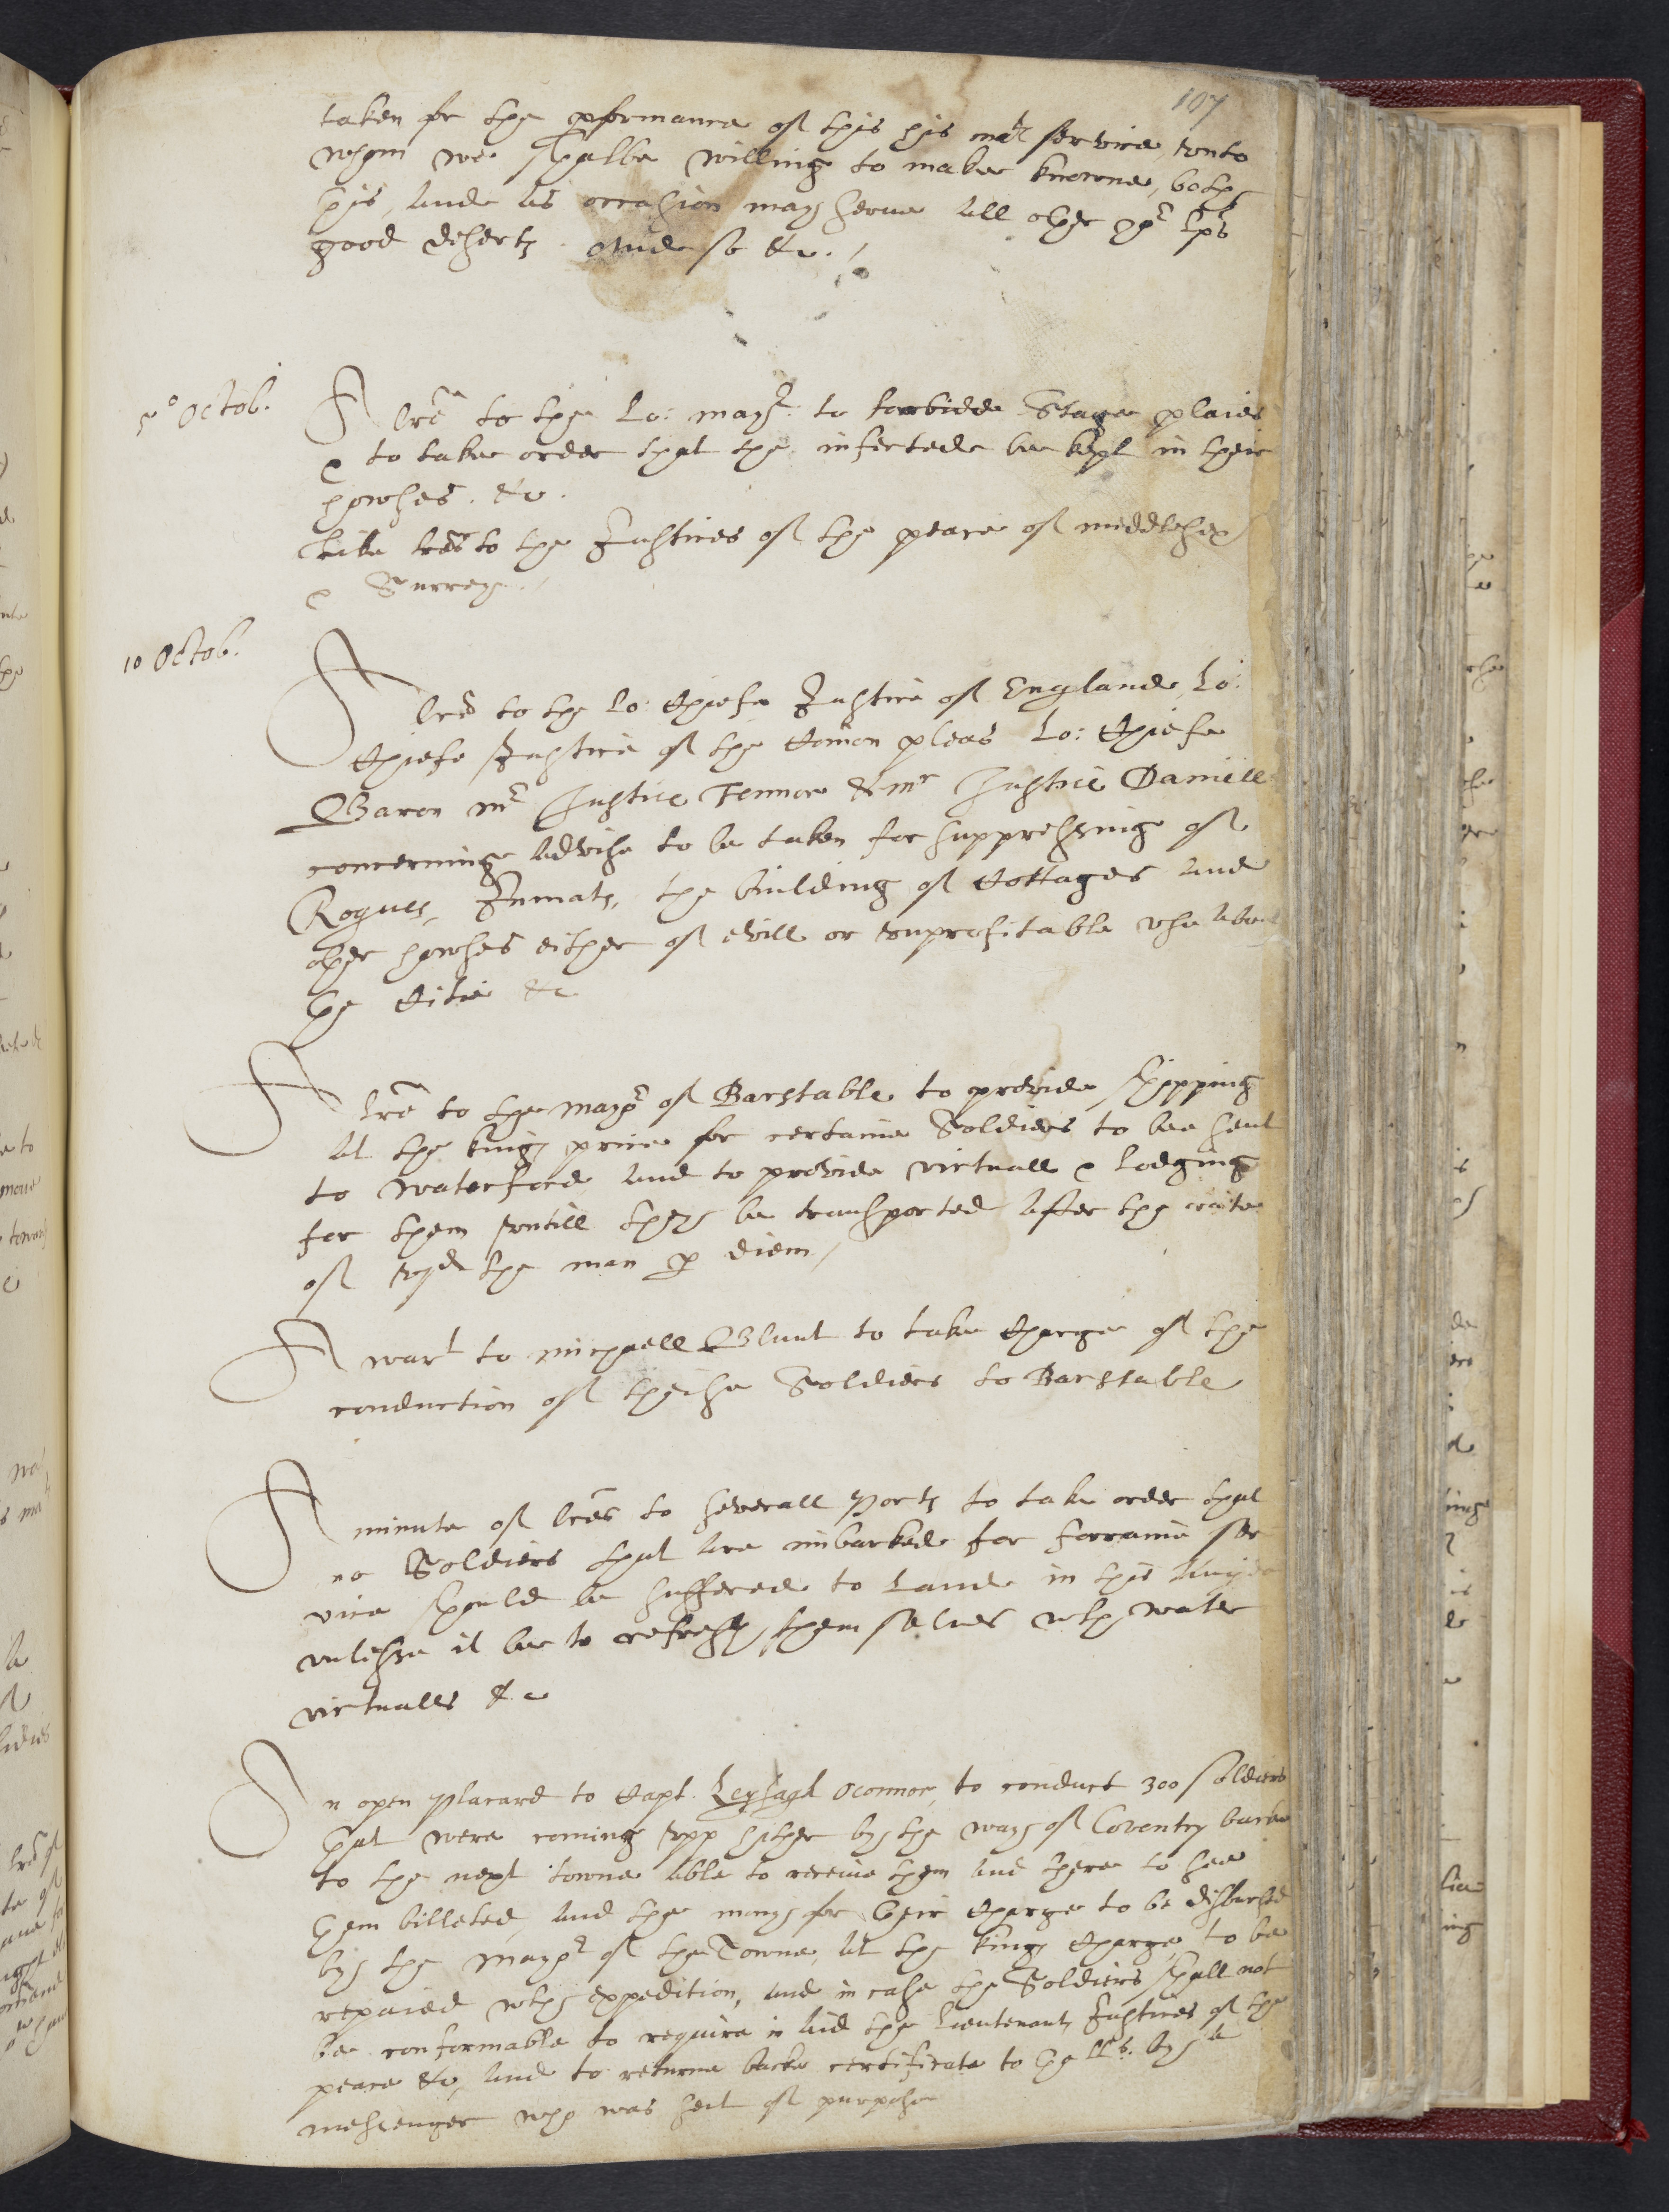 107
taken for the pformance of this his mats service, vnto
whom we shalbe willing to make knowne, bothe
this, and as occasion may serve all other yor Lps
good deserts. And so &c.
5º Octob.
A lre to the Lo: mayr. to forbidde Stage plaies
& to take order that the infected be kept in their
howses. &c.
Like lres to the Justices of the peace of middlesex
& Surrey.
10 Octob.
A lre to the Lo: Chiefe Justice of England, Lo:
Chiefe Justice of the Comon pleas Lo: Chiefe
Baron mr Justice Fennor & mr Justice Daniell
concerning advise to be taken for suppressing of
Rogues, Inmats, the building of Cottages and
other howses either of evill or vnprofitable vse
the Citie &c
A lre to the mayor of Barstable to provide shipping
at the kings price for certaine Soldiers to bee sent
to Waterford, and to provide victuall & lodging
for them vntill they be transported after the rate
of the man p diem
A wart to michaell Blunt to take Charge of the
conduction of theise Soldiers to Barstable
A minute of lres to severall Ports to take order that
no Soldiers that are imbarked for forraine ser
vice should be suffered to land in this
vnlesse it be to refresh them selues wth water
victualls &c
An open Placard to Capt. Oconnor, to conduct 300 soldiers
that were coming vpp hither by the way of Coventry backe
to the next towne able to receive them and there to see
them billeted, and the mony for their Charge to be disbursed
by the mayor of the Towne, at the kings Charge, to be
repaied wth expedition, and in case the Soldiers shall not
be conformable to require in aid the Lieutenants Justices of the
peace &c, and to returne backe certificate to the LLs. by
messenger who was sent of purpose